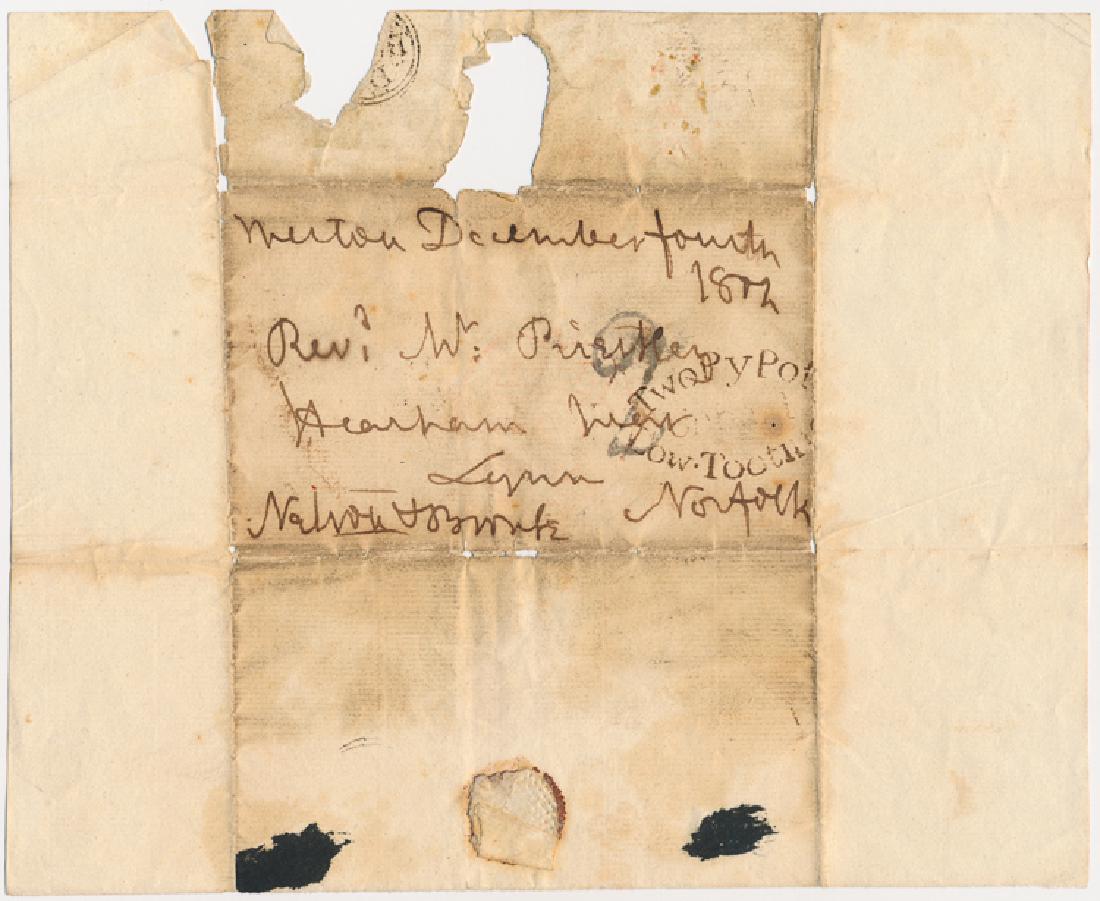 Merton December fourth
1802
Revd. Mr: Priestley
Hearham near
Lynn
Norfolk
Nelson & Bronte
Two Py Post
Low.Tooth